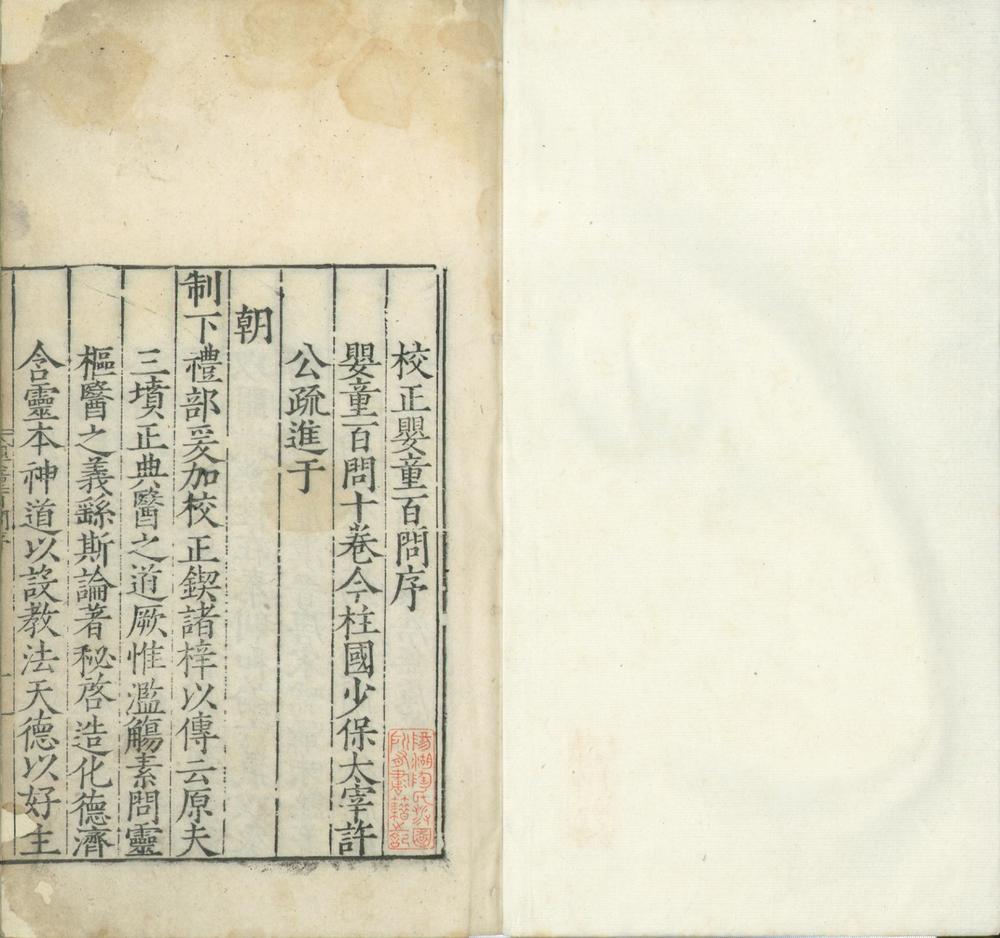 校正嬰童百問序
嬰童百問十卷今柱國少保太宰許
公疏進于
朝
制下禮部爰加校正鍥諸梓以傳云原夫
三墳正典醫之道厥惟濫觴素問靈
樞醫之義繇斯論著秘啓造化德濟
含靈本神道以設教法天德以好生
陽湖陶氏涉園
所有書籍之記